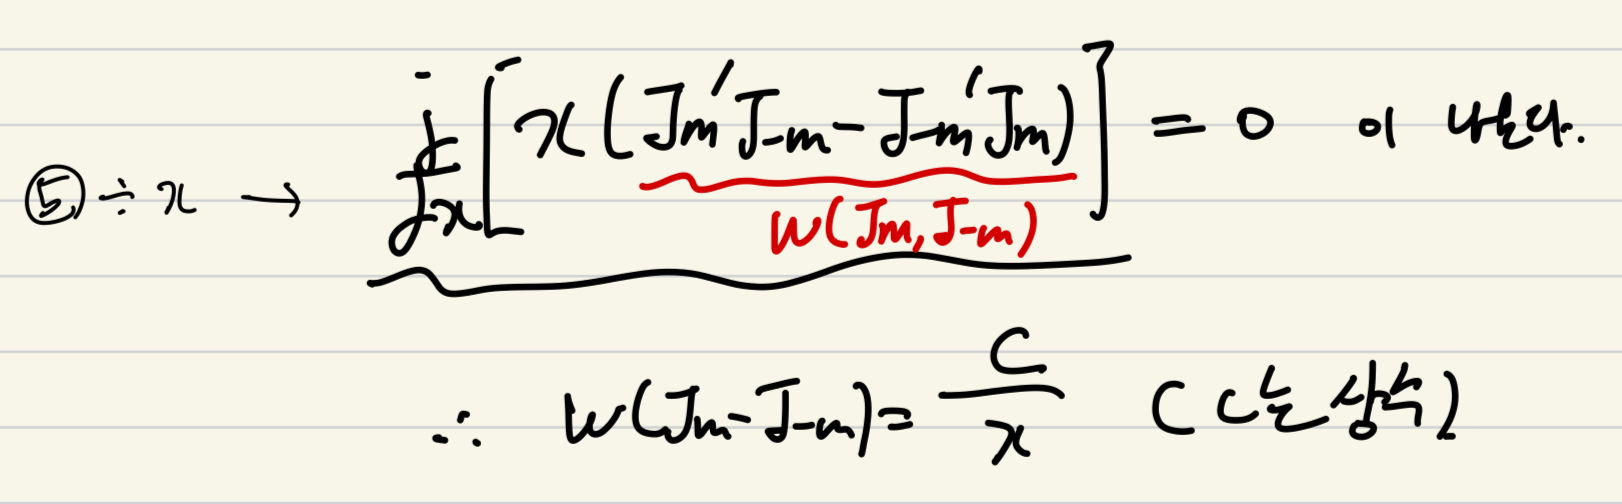 ⑤ ÷ x → d/dx [ x (Jm' J-m - J-m' Jm) ] = 0 이 나온다.
W(Jm, J-m)
∴ W(Jm - J-m) = C/x (C는 상수)